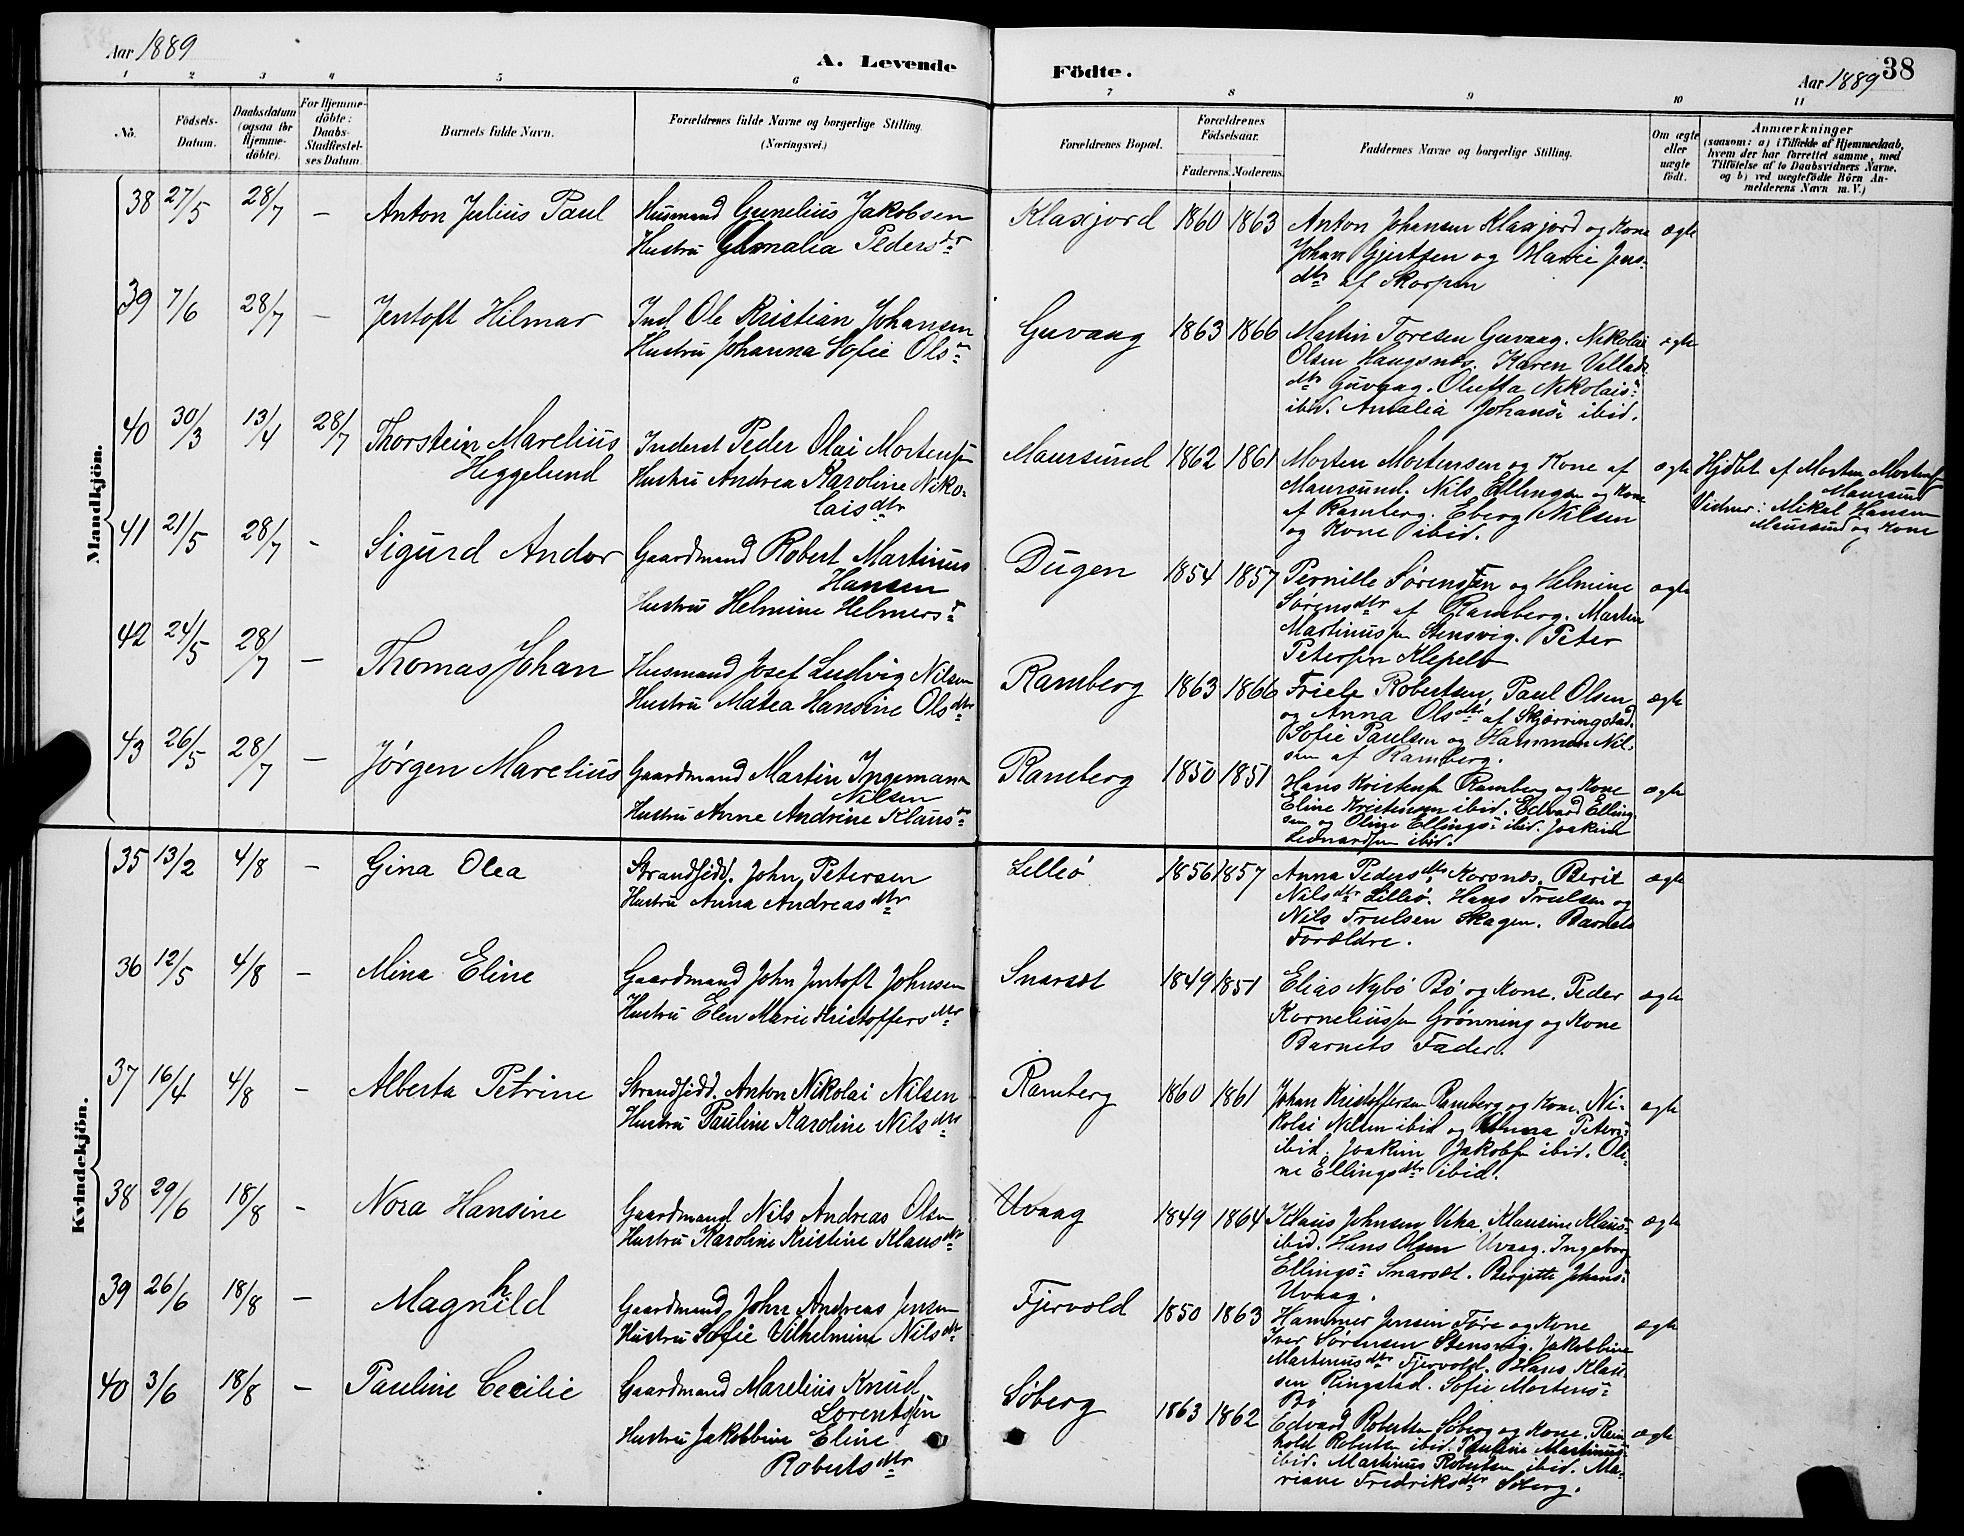 Aar 1889
A. Levende Födte.
Aar 1889
38
1 2 3 4 5 6 7 8 9 10 11
No.
Födsels-Datum.
Daabsdatum (ogsaa for Hjemme-döbte).
For Hjemme-döbte: Daabs-Stadfæstel-ses Datum.
Barnets fulde Navn.
Forældrenes fulde Navne og borgerlige Stilling. (Næringsvei.)
Forældrenes Bopæl.
Forældrenes Födselsaar.
Faderens. Moderens.
Faddernes Navne og borgerlige Stilling.
Om ægte eller uægte født.
Anmærkninger
(saasom: a) i Tilfælde af Hjemmedaab, hvem der har forrettet samme, med Tilföielse af to Daabsvidners Navne. og b) ved uægtefödte Börn An-melderens Navn m. V.)
Mandkjön.
38 27/5 28/7 — Anton Julius Paul
Husmand Gunelius Jakobsen
Hustru Amalia Pedersdr
Klaxjord 1860 1863
Anton Johansen Klaxjord og Kone
Johan Gjertsen og Marie Jens-
dtr af Skorpen
ægte
39 7/6 28/7 — Jentoft Hilmar
Ind. Ole Kristian Johansen
Hustru Johanna Sofie Olsn
Guvaag 1863 1866
Martin Toresen Guvaag. Nikolai
Olsen Haugsnes. Karen Vallads-
dtr Guvaag. Oluffa Nikolais-
ibid. Amalia Johans- ibid.
ægte
40 30/3 13/4 28/7 Thorstein Marelius
Heggelund
Inderst Peder Olai Mortensen
Hustru Andrea Karoline Niko-
laisdtr
Maursund 1862 1861
Morten Mortensen og Kone af
Maursund. Nils Ellingsen og Kone
af Ramberg. Eberg Nilsen
og Kone ibid.
ægte
Hjdbt af Morten Mortens
Maursund
Vidner: Mikal Hansen
Maursund og Kone
41 21/5 28/7 - Sigurd Andor
Gaardmand Robert Martinus
Hansen
Hustru Helmine Helmers-
Dugen 1854 1857
Pernille Sørensen og Helmine
Sørensdtr af Ramberg. Martin
Martinussen Stensvig. Peter
Petersen Klepelv
ægte
42 24/5 28/7 — Thomas Johan
Husmand Josef Ludvig Nilsen
Hustru Matea Hansine Olsdtr
Ramberg 1863 1866
Friele Robertsen, Paul Olsen
og Anna Olsdtr af Skjørringstad.
Sofie Paulsen og Hammen Nil-
sen af Ramberg.
ægte
43 26/5 28/7 — Jørgen Marelius
Gaardmand Martin Ingeman
Nilsen
Hustru Anne Andrine Klaus-
Ramberg 1850 1851
Hans Kristens Ramberg og Kone
Eline Kristensen ibid. Edvard Elling-
sen og Oline Ellings- ibid. Joakim
Leonardsen ibid.
ægte
Kvindekjön.
35 13/2 4/8 — Gina Olea
Strandsidd. John Petersen
Hustru Anna Andreasdtr
Lilleø 1856 1857
Anna Pedersdtr Korsnes. Berit
Nilsdtr Lilleø. Hans Trulsen og
Nils Trulsen Skagen. Barnets
Forældre.
ægte
36 12/5 4/8 — Mina Eline
Gaardmand John Jentoft Johnsen
Hustru Elen Marie Kristoffersdtr
Snarset 1849 1851
Elias Nybø Bø og Kone. Peder
Korneliussen Grønning og Kone
Barnets Fader.
ægte
37 16/4 4/8 — Alberta Petrine
Strandsidd. Anton Nikolai Nilsen
Hustru Pauline Karoline Nilsdtr
Ramberg 1860 1861
Johan Kristoffersen Ramberg og Kone. Ni-
kolai Nilsen ibid og Anna Peters-
ibid. Joakim Jakobsen ibid. Oli-
ne Ellingsdtr ibid.
ægte
38 29/6 18/8 - Nora Hansine
Gaardmand Nils Andreas Olsen
Hustru Karoline Kristine Klausdtr
Uvaag 1849 1864
Klaus Johnsen Vika. Klausine Klaus-
ibid. Hans Olsen Uvaag. Ingeborg
Ellings- Snarset. Birgitte Johans-
Uvaag.
ægte
39 26/6 18/8 — Magnhild
Gaardmand John Andreas Jensen
Hustru Sofie Vilhelmine Nilsdtr
Fjervold 1850 1863
Hammer Jensen Føre og Kone
Iver Sørensen Stensvig. Jakobbine
Martinusdtr Fjervold. Hans Klau-
sen Ringstad. Sofie Mortens-
Bø
ægte
40 3/6 18/8 — Pauline Cecilie
Gaardmand Marelius Knud
Lorentsen
Hustru Jakobbine Eline
Robertsdtr
Søberg 1863 1862
Edvard Robertsen Søberg og Kone. Rein-
hold Robertsen ibid. Pauline Martinus-
ibid. Martinus Robertsen ibid. Ma-
riane Fredriksdtr Søberg.
ægte